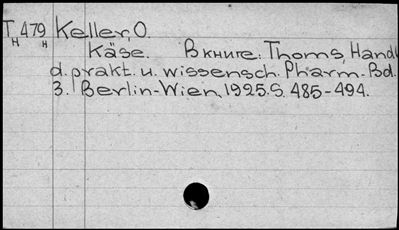 T 479 Keller, O.
H H
Käse. В книге: Thoms, Handb
d. prakt. u. wissensch. Pharm. Bd.
3. Berlin-Wien, 1925. S. 485-494.